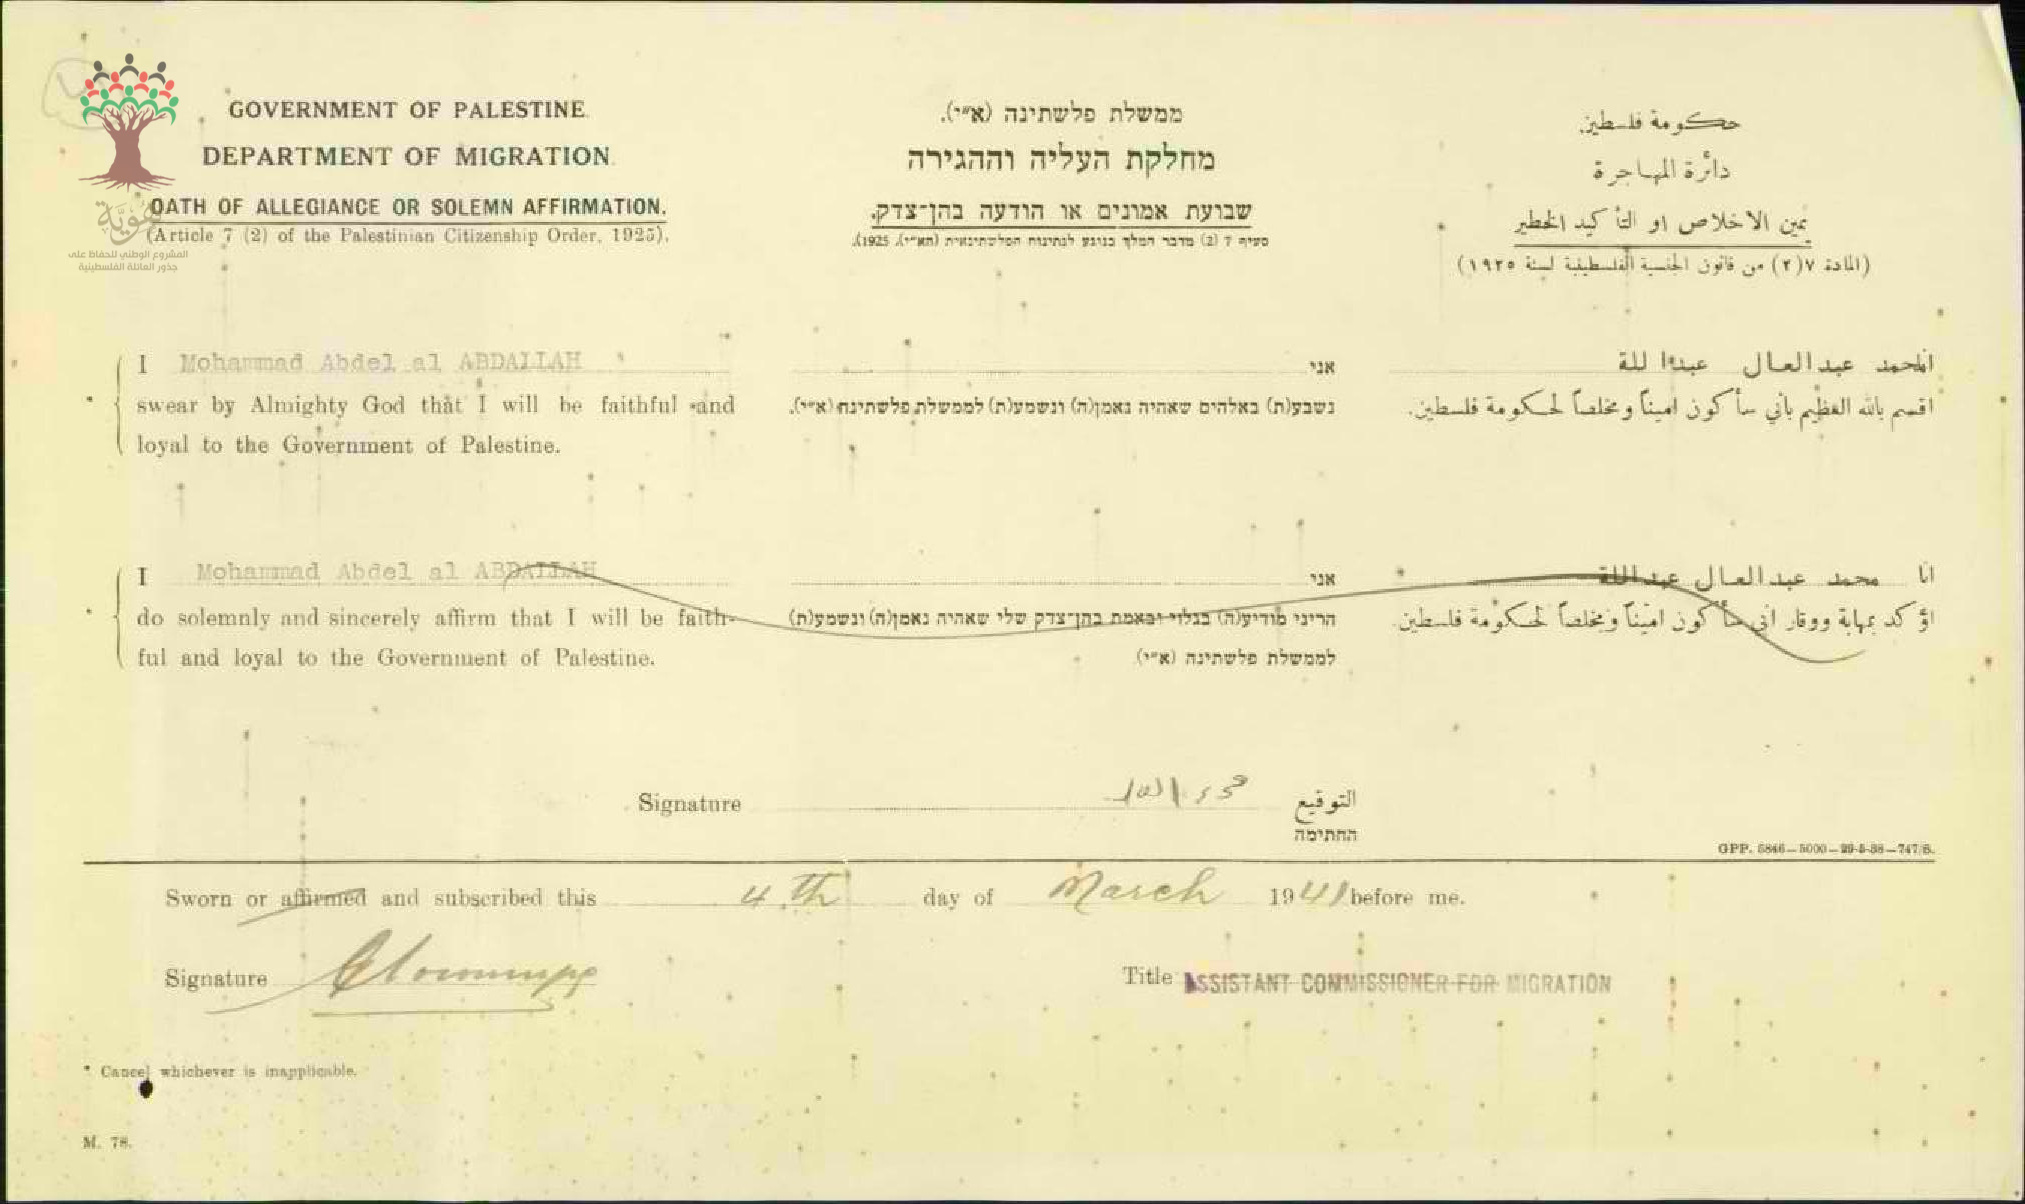 GOVERNMENT OF PALESTINE.
DEPARTMENT OF MIGRATION.
OATH OF ALLEGIANCE OR SOLEMN AFFIRMATION.
(Article 7 (2) of the Palestinian Citizenship Order, 1925).
هُويَّة
المشروع الوطني للحفاظ على
جذور العائلة الفلسطينية
ממשלת פלשתינה (א״י).
מחלקת העליה וההגירה
שבועת אמונים או הודעה בהן־צדק.
סעיף 7 (2) מדבר המלך בנוגע לנתינות הפלשתינאית (הא״י), 1925).
حكومة فلسطين.
دائرة المهاجرة
يمين الاخلاص او التأكيد الخطير
(المادة ٧(٢) من قانون الجنسية الفلسطينية لسنة ١٩٢٥)
I Mohammad Abdel al ABDALLAH
swear by Almighty God that I will be faithful and
loyal to the Government of Palestine.
אני
נשבע(ת) באלהים שאהיה נאמן(ה) ונשמע(ת) לממשלת פלשתינה (א״י).
انا محمد عبدالعال عبدا للة
اقسم بالله العظيم بأني سأكون اميناً ومخلصاً لحكومة فلسطين.
I Mohammad Abdel al ABDALLAH
do solemnly and sincerely affirm that I will be faith-
ful and loyal to the Government of Palestine.
אני
הריני מודיע(ה) בגלוי ובאמת בהן־צדק שלי שאהיה נאמן(ה) ונשמע(ת)
לממשלת פלשתינה (א״י).
انا محمد عبدالعال عبداللة
اؤكد بمهابة ووقار اني سأكون اميناً ومخلصاً لحكومة فلسطين.
Signature التوقيع
החתימה
GPP. 5846—5000—29-5-38—747/S.
Sworn or affirmed and subscribed this 4.th day of March 1941 before me.
Signature
Title ASSISTANT COMMISSIONER FOR MIGRATION
* Cancel whichever is inapplicable.
M. 78.